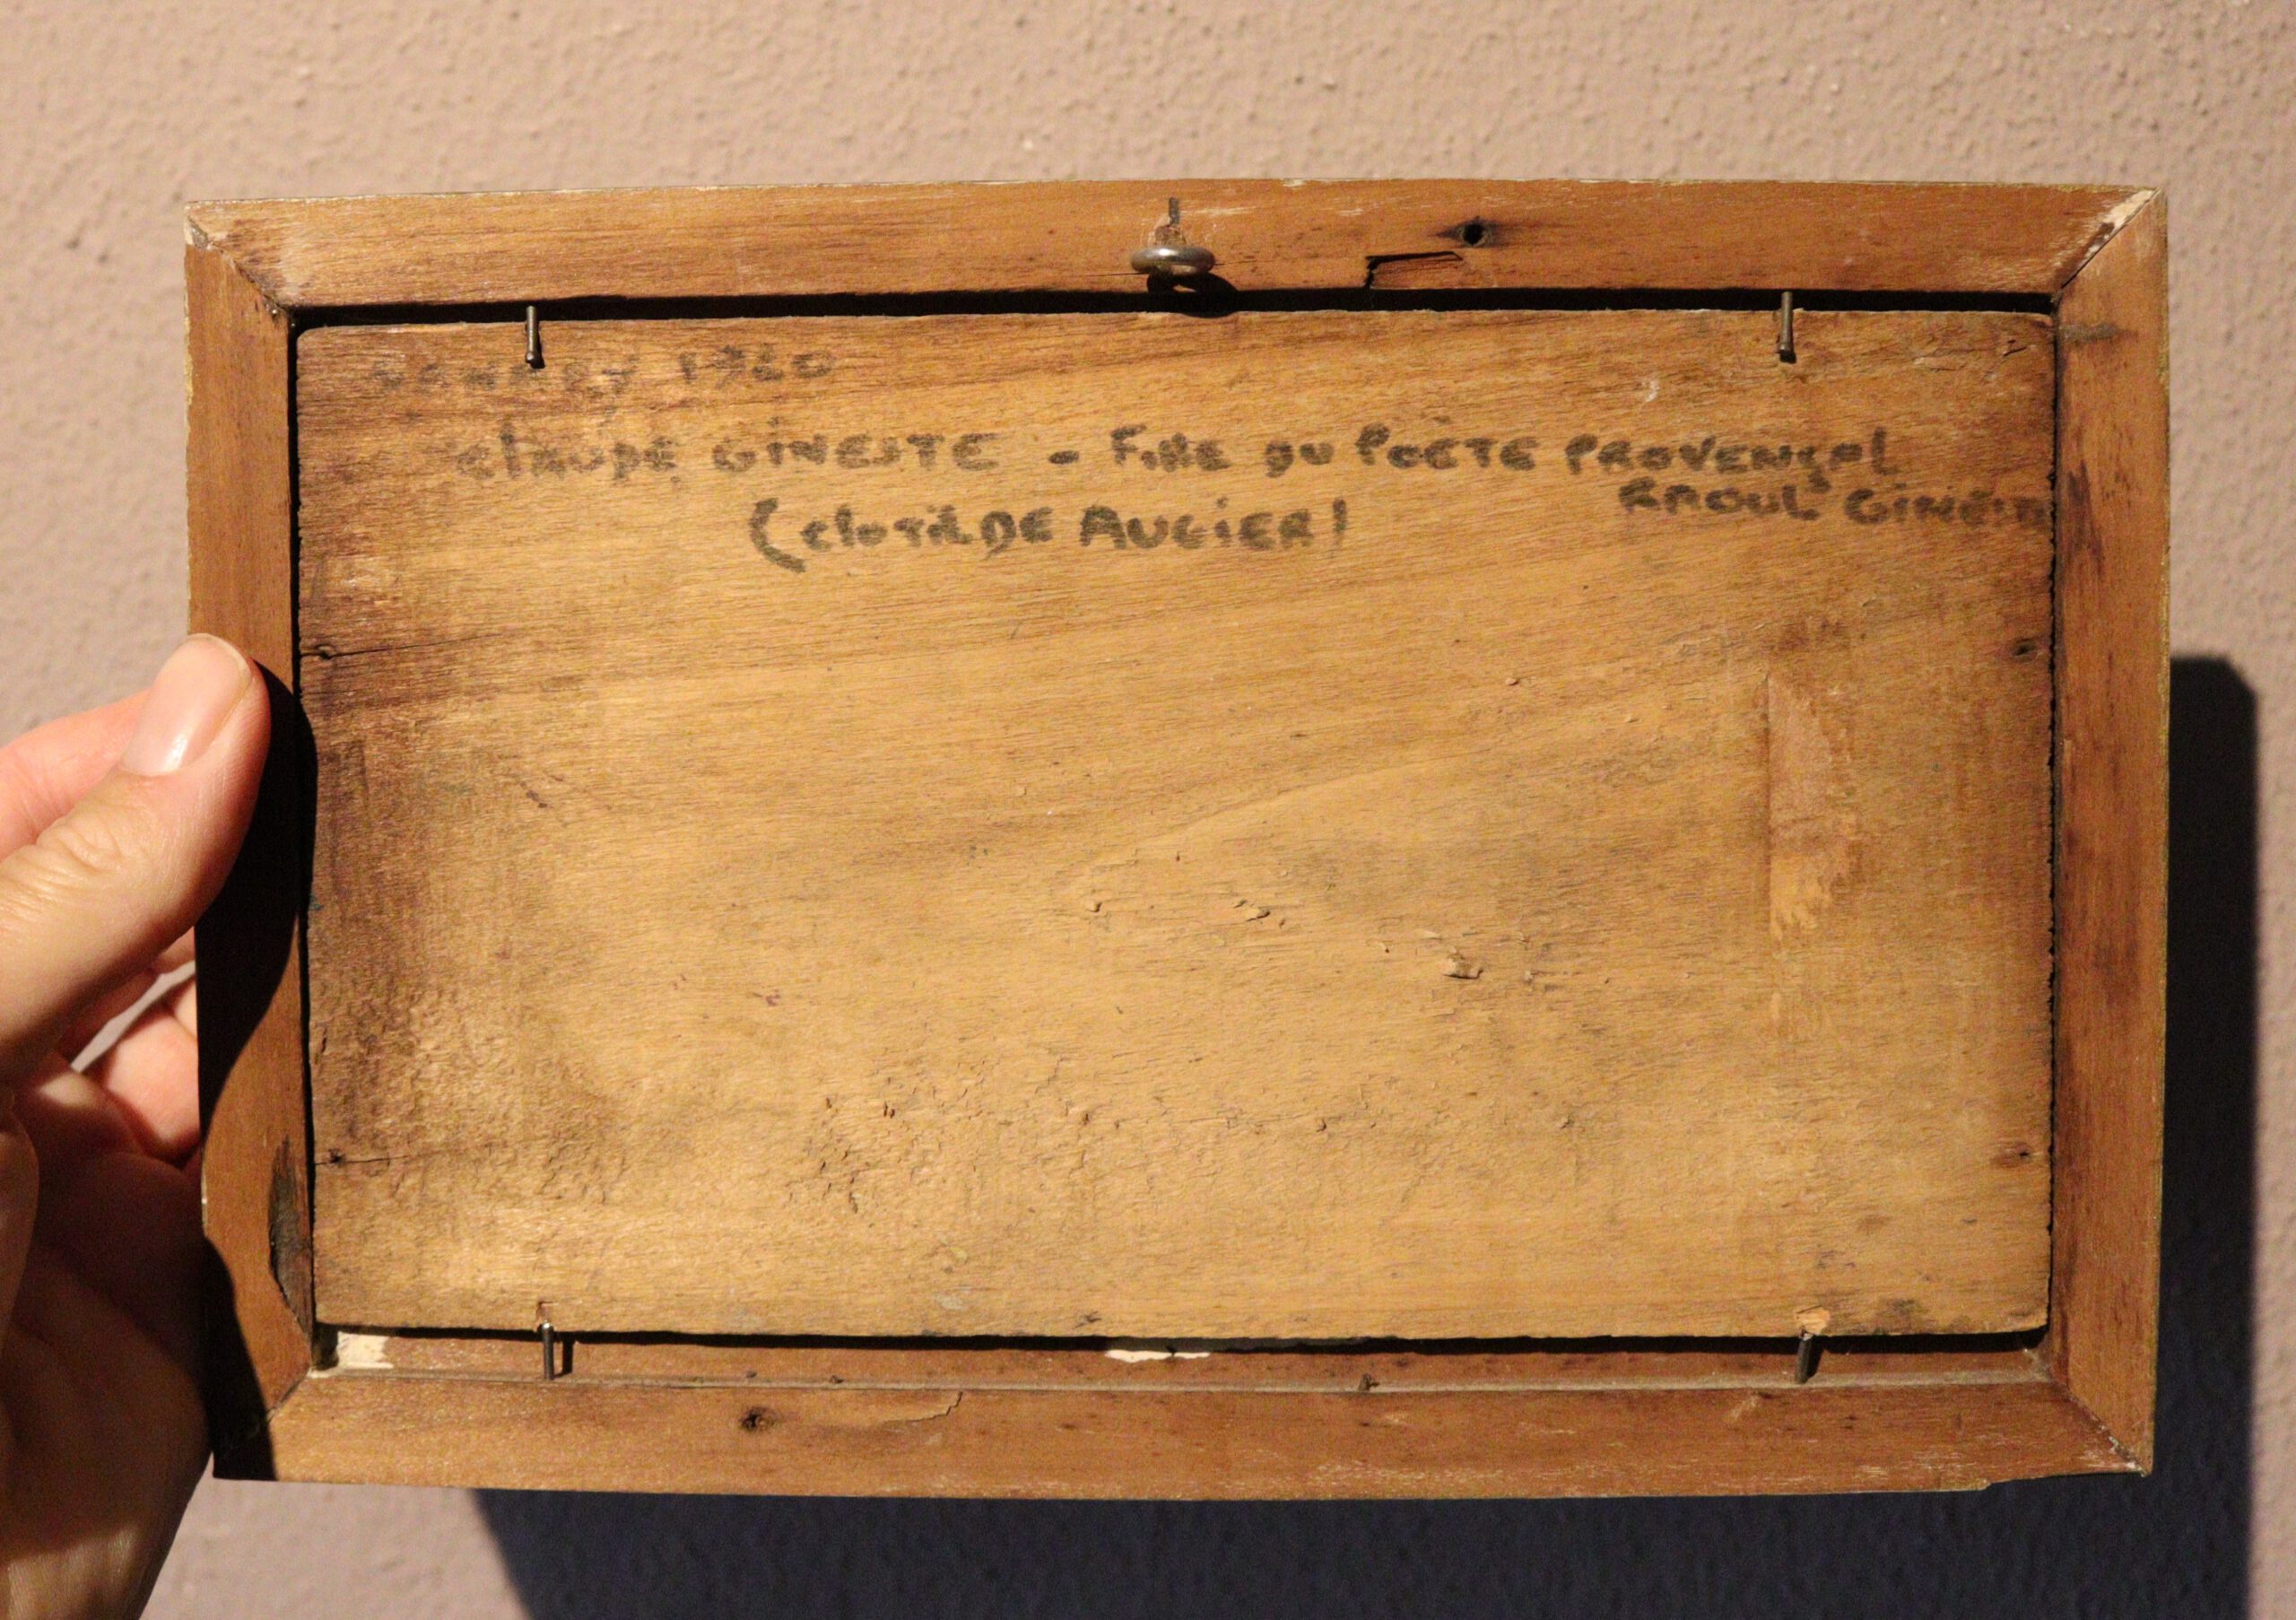 SANARY 1920
clAUDE GINESTE - Fille DU POÈTE PROVENÇAL
RAOUL GINESTE
(clotilDE AUGIER)